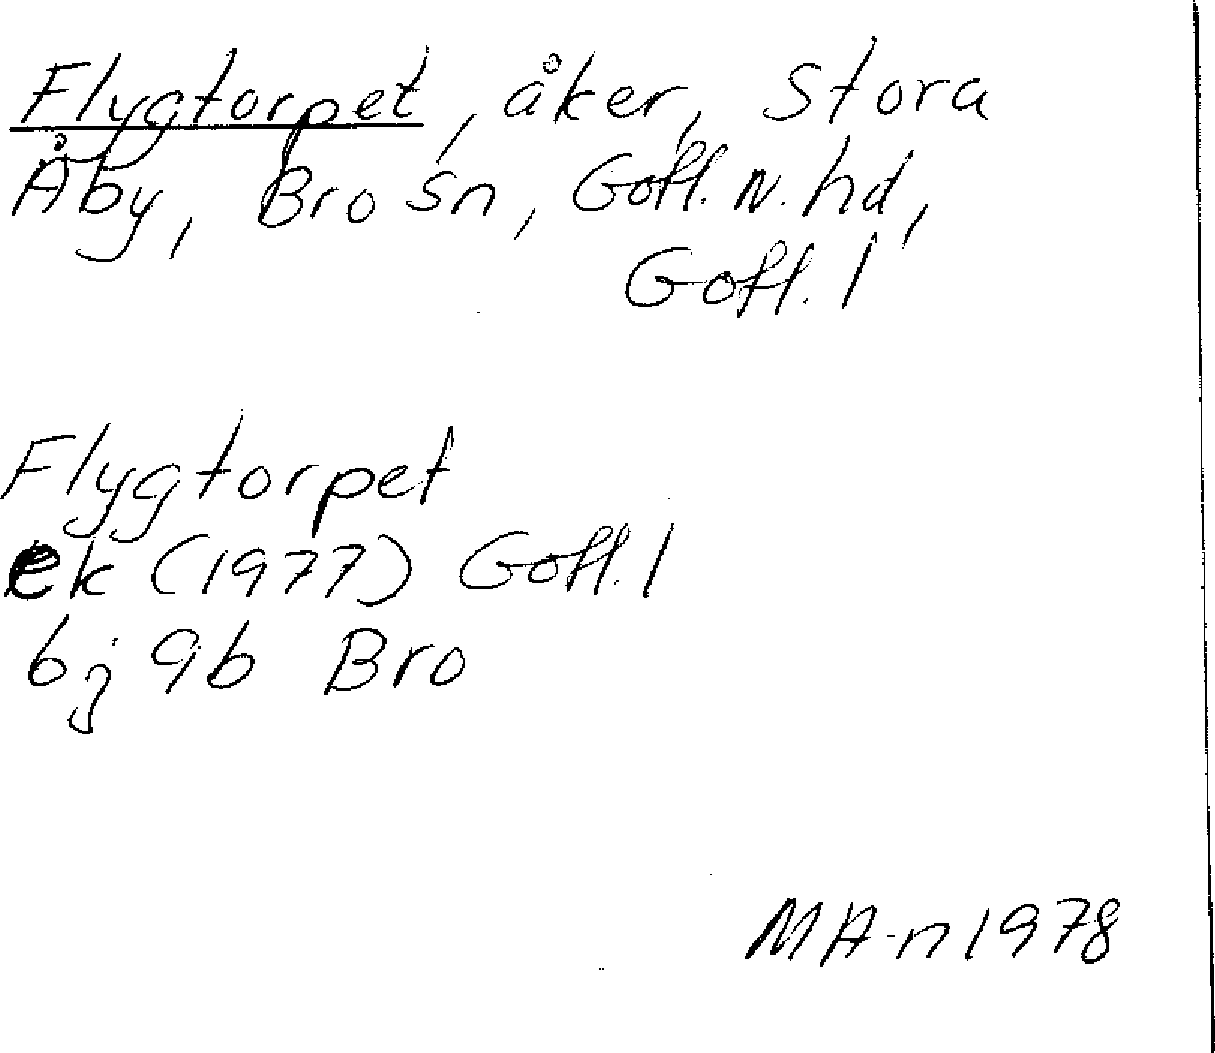 Flygtorpet, åker, Stora
Åby, Bro sn, Gotl. N. hd,
Gotl. l
Flygtorpet
ek (1977) Gotl. l
6j 9b Bro
MA-n 1978